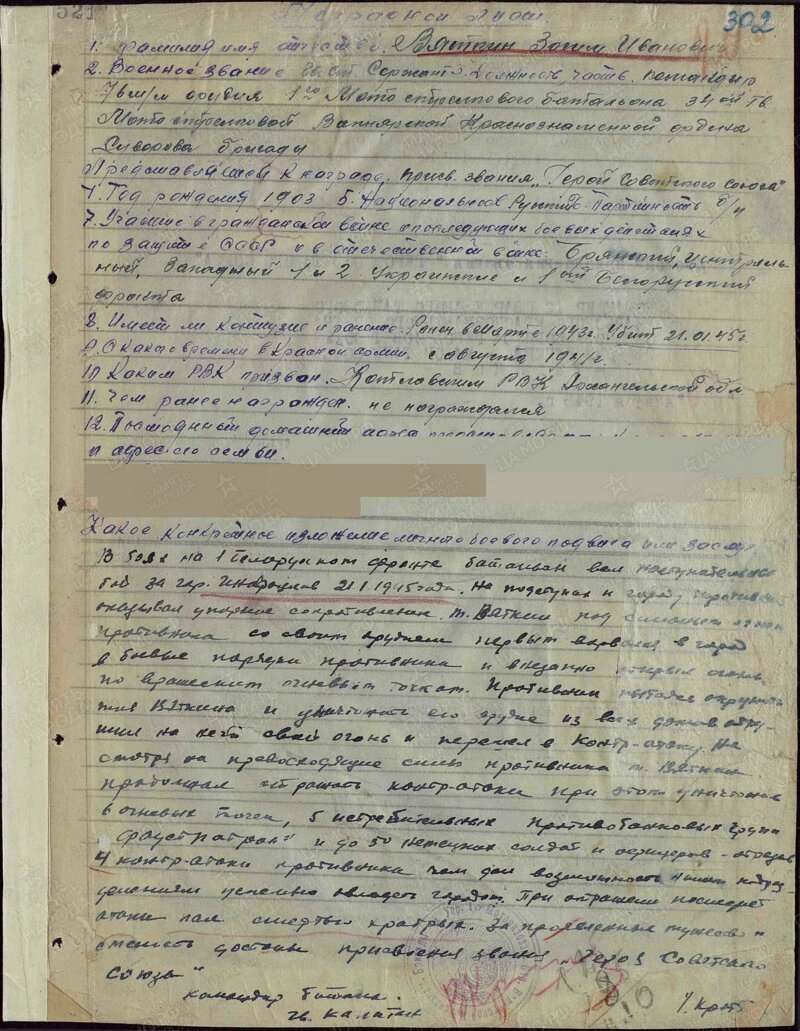 302
Наградной лист.
1. Фамилия имя отчество. Вяткин Зотим Иванович
2. Военное звание Гв. ст. Сержант Должность, часть командир
76 м/м орудия 1го Мотострелкового батальона 34ой Гв.
Мотострелковой Вапнярской Краснознаменной ордена
Суворова бригады
Представляется к награде. присв. звания „Герой Советского Союза"
4. Год рождения 1903 5. Национальность Русский Партийность б/п
7. Участие в гражданской войне и последующих боевых действиях
по защите СССР и в отечественной войне. Брянский, Централь-
ный, Западный 1 и 2 Украинские и 1ый Белорусский
фронта
8. Имеет ли контузию и ранение. Ранен в марте 1943г. Убит 21.01.45г
9. С какого времени в Красной армии. с августа 1941г.
10 Каким РВК призван. Котласским РВК Архангельской обл
11. Чем ранее награжден. не награждался
12. Постоянный домашний адрес
и адрес его семьи.
Какое конкретное изложение личного боевого подвига или заслуг
В боях на 1 Белорусском фронте батальон вел наступательный
бой за гор. Иновроцлав 21.1.1945 года. На подступах к городу противник
оказывал упорное сопротивление. т. Вяткин под сильным огнем
противника со своим орудием первым ворвался в город
в боевые порядки противника и внезапно открыл огонь
по вражеским огневым точкам. Противник пытался окружить
тов Вяткина и уничтожить его орудие из всех домов обру-
шил на него свой огонь и перешел в контр-атаку. Не
смотря на превосходящие силы противника т. Вяткин
продолжал отражать контр-атаки при этом уничтожив
6 огневых точек, 5 истребительных противотанковых групп
„фаустпатрон" и до 50 немецких солдат и офицеров - отразив
4 контр-атаки противника чем дал возможность нашим подраз-
делениям успешно овладеть городом. При отражении последней
атаки пал смертью храбрых. За проявленные мужество и
смелость достоин присвоения звания „Герой Советского
Союза"
Командир батана.
гв. Капитан